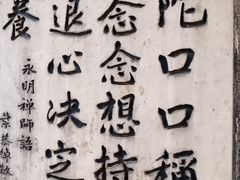 陀口口稱
念念想持
退心決定
養
永明禪師語
葉恭綽敬